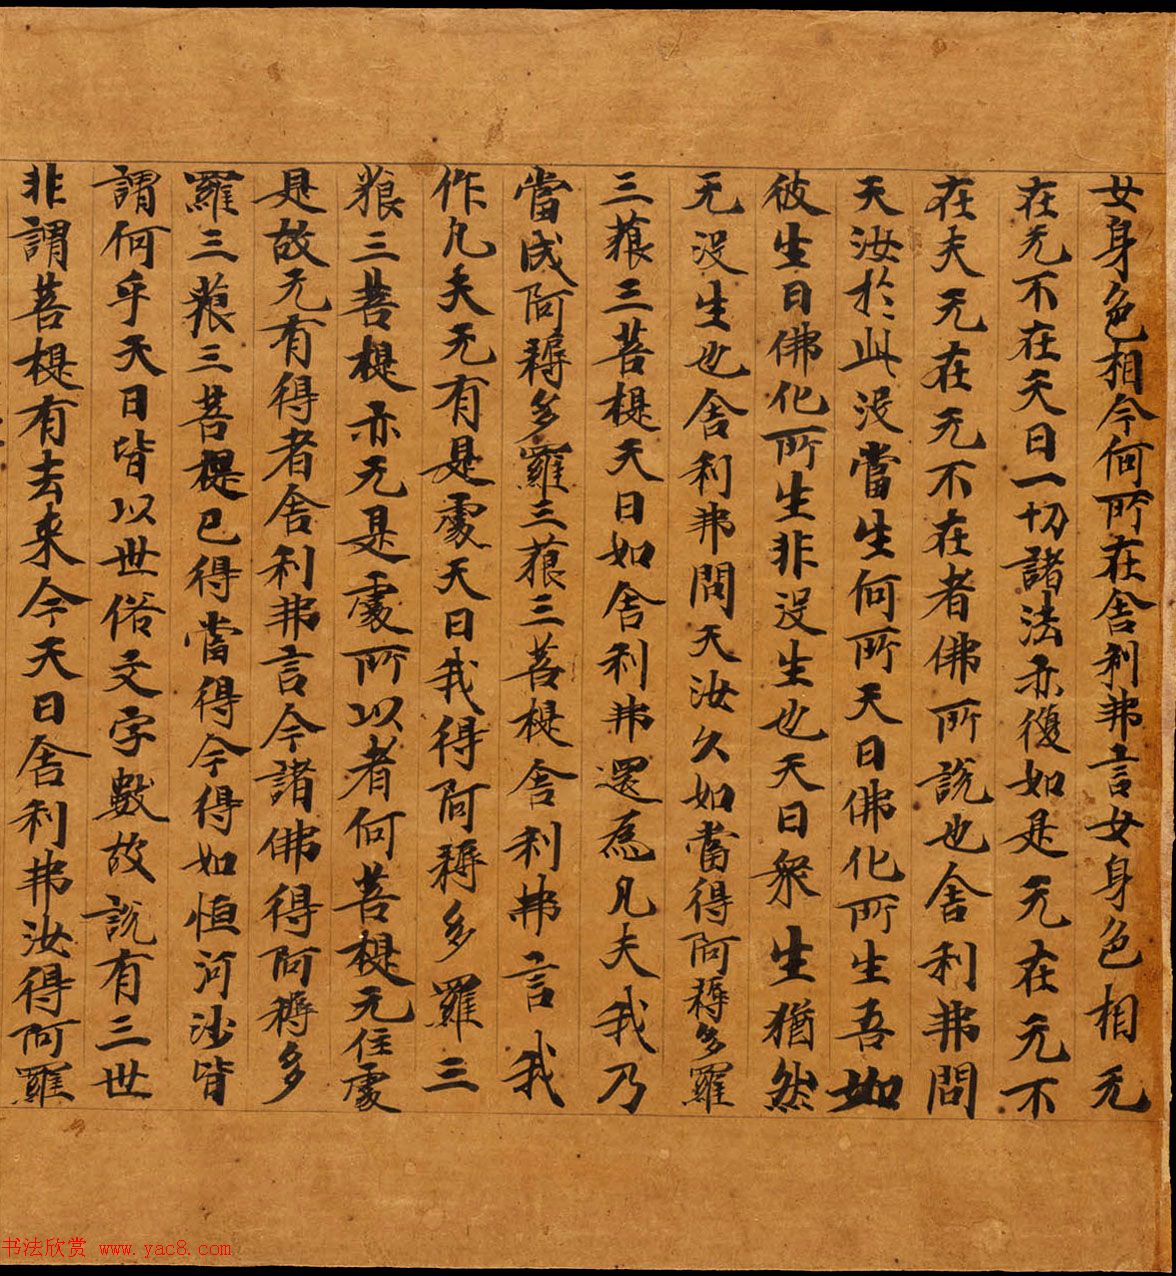 女身色相今何所在舍利弗言女身色相无
在无不在天曰一切諸法亦復如是无在无不
在夫无在无不在者佛所說也舍利弗問
天汝於此没當生何所天曰佛化所生吾如
彼生曰佛化所生非没生也天曰衆生猶然
无没生也舍利弗問天汝久如當得阿耨多羅
三藐三菩提天曰如舍利弗還為凡夫我乃
當成阿耨多羅三藐三菩提舍利弗言我
作凡夫无有是處天曰我得阿耨多羅三
藐三菩提亦无是處所以者何菩提无住處
是故无有得者舍利弗言今諸佛得阿耨多
羅三藐三菩提已得當得今得如恒河沙皆
謂何乎天曰皆以世俗文字數故說有三世
非謂菩提有去来今天曰舍利弗汝得阿羅
书法欣赏 www.yac8.com